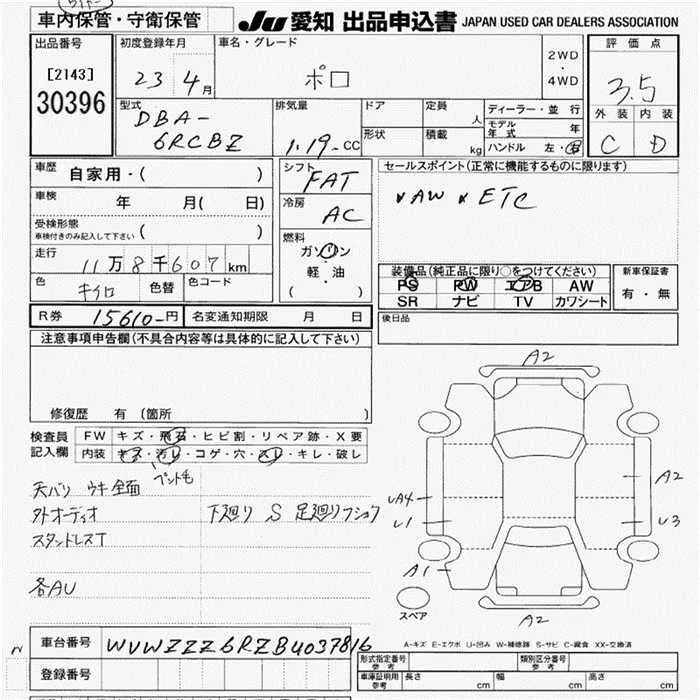 車内保管・守衛保管
JU 愛知 出品申込書 JAPAN USED CAR DEALERS ASSOCIATION
出品番号
[2143]
30396
初度登録年月
23 4月
車名・グレード
ポロ
2WD
・
4WD
評価点
3.5
外装 内装
C D
型式
DBA-
6RCBZ
排気量
1.19-cc
ドア
定員
人
形状
積載
kg
ディーラー・並行
モデル年式
年
ハンドル 左・右
車歴
自家用・( )
車検
年 月( 日)
受検形態
車検付きのみ記入して下さい ( )
走行
11万8千607km
色
キイロ
色替
色コード
シフト
FAT
冷房
AC
燃料
ガソリン
・
軽・油
( )
セールスポイント(正常に機能するものに限ります)
×AW ×ETC
装備品(純正品に限り○をつけてください)
PS PW エアB AW
SR ナビ TV カワシート
新車保証書
有・無
R券 15610-円
名変通知期限 月 日
後日品
注意事項申告欄(不具合内容等は具体的に記入して下さい)
修復歴 有 (箇所 )
検査員
記入欄
FW キズ・飛石・ヒビ割・リペア跡・X要
内装 キズ・汚レ・コゲ・穴・スレ・キレ・破レ
ペット毛
天バリ ウキ全面
外オーディオ
下廻り S 足廻りフショク
スタッドレスT
各AU
A2
A2
UA4
U1
U3
A1
A2
スペア
車台番号 WVWZZZ6RZBU037816
登録番号
A-キズ E-エクボ U-凹み W-補修跡 S-サビ C-腐食 XX-交換済
形式指定番号
参考
類別区分番号
参考
車庫証明用
参考
長さ cm
幅 cm
高さ cm